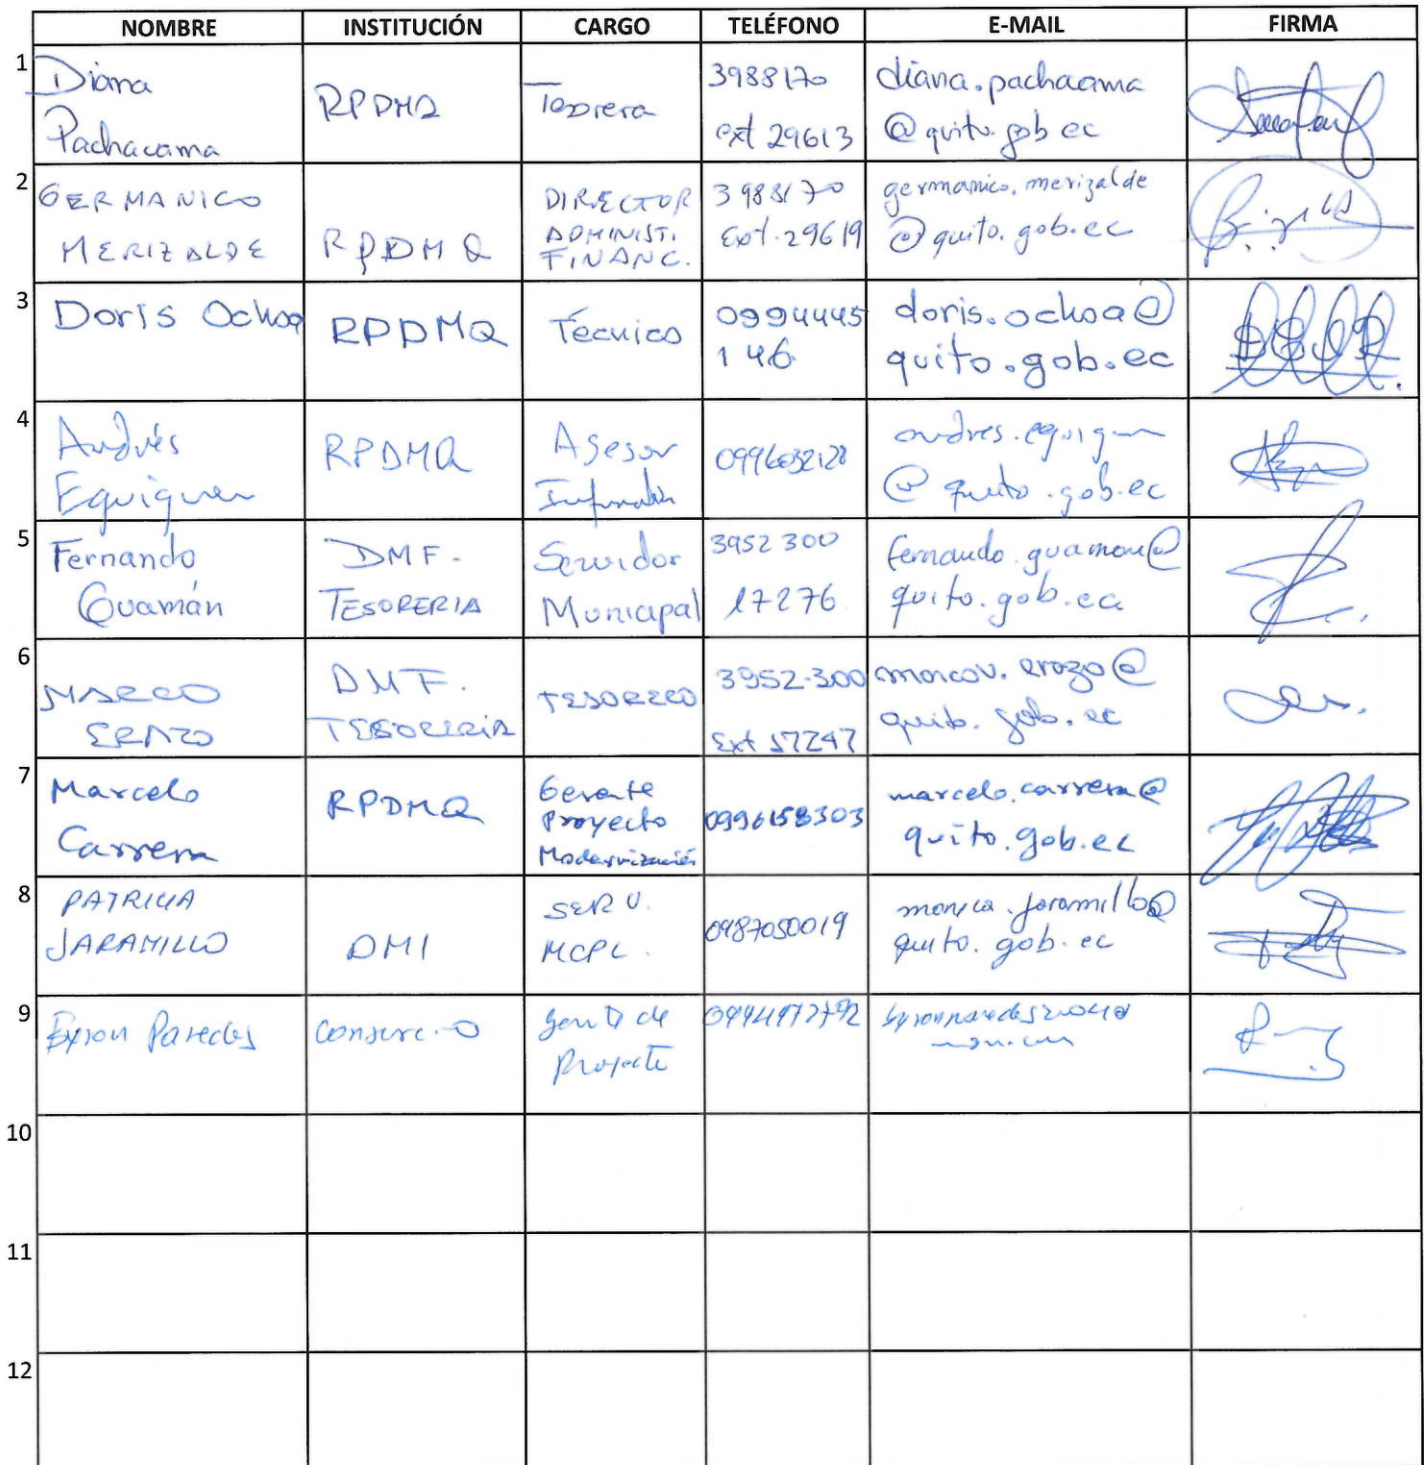 NOMBRE INSTITUCIÓN CARGO TELÉFONO E-MAIL FIRMA
1
Diana
Pachacama
RPDMQ
Tesorera
3988170
ext 29613
diana.pachacama
@quito.gob.ec
2
GERMANICO
MERIZALDE
RPDMQ
DIRECTOR
ADMINIST.
FINANC.
3988170
Ext. 29619
germanico.merizalde
@quito.gob.ec
3
Doris Ochoa
RPDMQ
Técnico
0994445
146
doris.ochoa@
quito.gob.ec
4
Andrés
Eguiguren
RPDMQ
Asesor
@quito.gob.ec
5
Fernando
Guamán
DMF.
TESORERIA
Servidor
Municipal
3952300
17276
fernando.guaman@
quito.gob.ec
6
MARCO
ERAZO
DMF.
TESORERIA
TESORERO
3952-300
Ext 17247
marcov.erazo@
quito.gob.ec
7
Marcelo
Carrera
RPDMQ
Gerente
Proyecto
Modernización
0996158303
marcelo.carrera@
quito.gob.ec
8
PATRICIA
JARAMILLO
DMI
SERV.
MCPL.
0987050019
monica.jaramillo@
quito.gob.ec
9
Byron Paredes
Consorcio
Proyecto
10
11
12